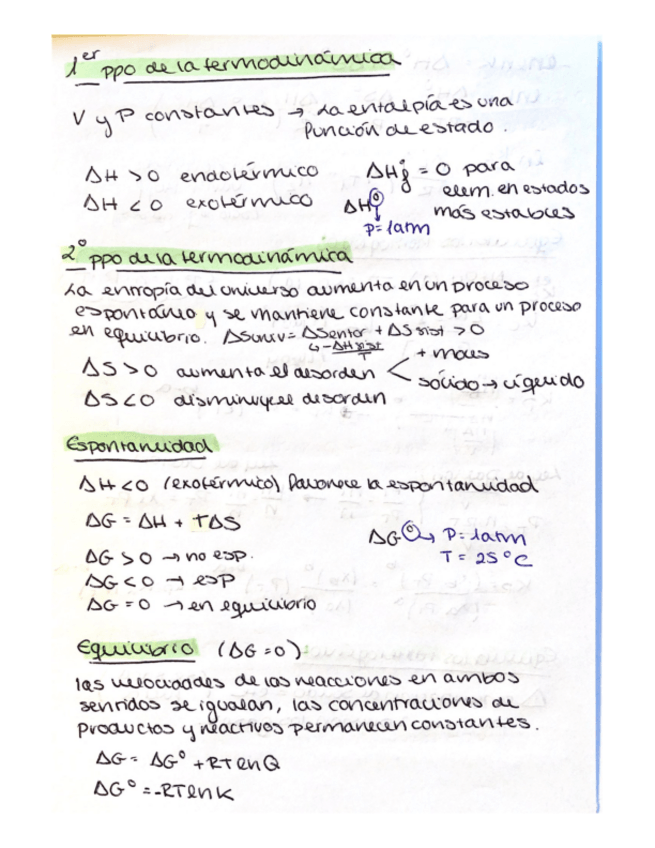 1er ppo de la termodinámica
V y P constantes → La entalpía es una
función de estado.
ΔH > 0 endotérmico
ΔH < 0 exotérmico
ΔHf° = 0 para
elem. en estados
más estables
ΔH°
P=1atm
2º ppo de la termodinámica
La entropía del universo aumenta en un proceso
espontáneo y se mantiene constante para un proceso
en equilibrio. ΔSuniv = ΔSentor + ΔSsist > 0
↳ -ΔHsist/T
ΔS > 0 aumenta el desorden
+ moles
sólido → líquido
ΔS < 0 disminuye el desorden
Espontanuidad
ΔH < 0 (exotérmico) favorece la espontanuidad
ΔG = ΔH + TΔS
ΔG° → P=1atm
T = 25°C
ΔG > 0 → no esp.
ΔG < 0 → esp
ΔG = 0 → en equilibrio
Equilibrio (ΔG = 0)
las velocidades de las reacciones en ambos
sentidos se igualan, las concentraciones de
productos y reactivos permanecen constantes.
ΔG = ΔG° + RT ln Q
ΔG° = -RT ln K